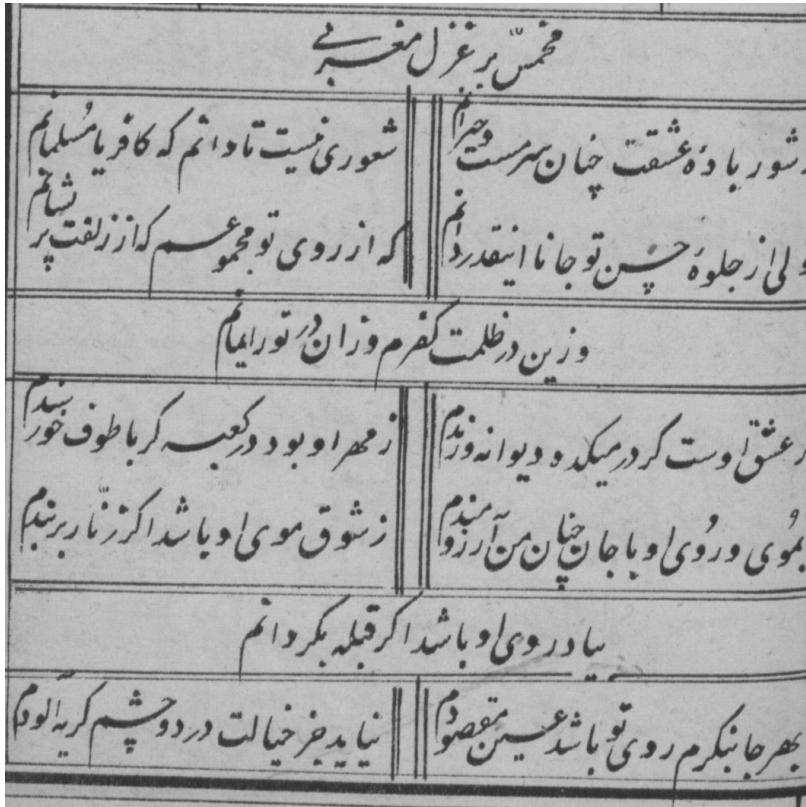 مخمس بر غزل مغربی
شور بادهٔ عشقت چنان سرمست و حیرانم شعوری نیست تا دانم که کافر یا مسلمانم
ولی از جلوهٔ حسن تو جانا اینقدر دانم که از روی تو مجموعم که از زلفت پریشانم
وزین در ظلمت کفرم وزان در نور ایمانم
ز عشق اوست کر در میکده دیوانه و رندم ز مهر او بود در کعبه کر با طوف خورسندم
بموی و روی او با جان چنان من آرزومندم ز شوق موی او باشد اکر زنّار بر بندم
بیاد روی او باشد اکر قبله بکردانم
بهر جا بنکرم روی تو باشد عین مقصودم نیاید جز خیالت در دو چشم کریه آلودم